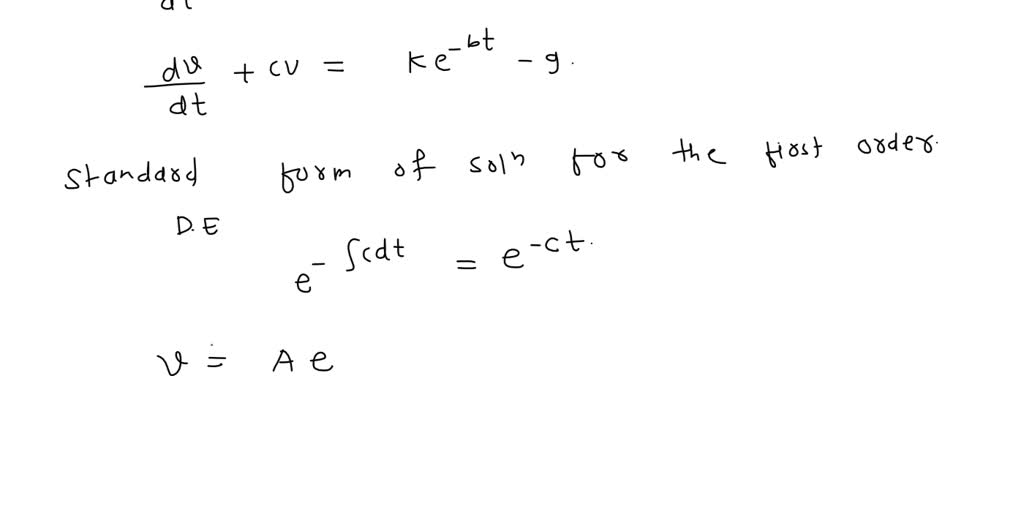 dt
dv/dt + cv = ke^{-bt} - g.
Standard form of soln for the first order.
D.E
e^{-∫cdt} = e^{-ct}.
v = A e